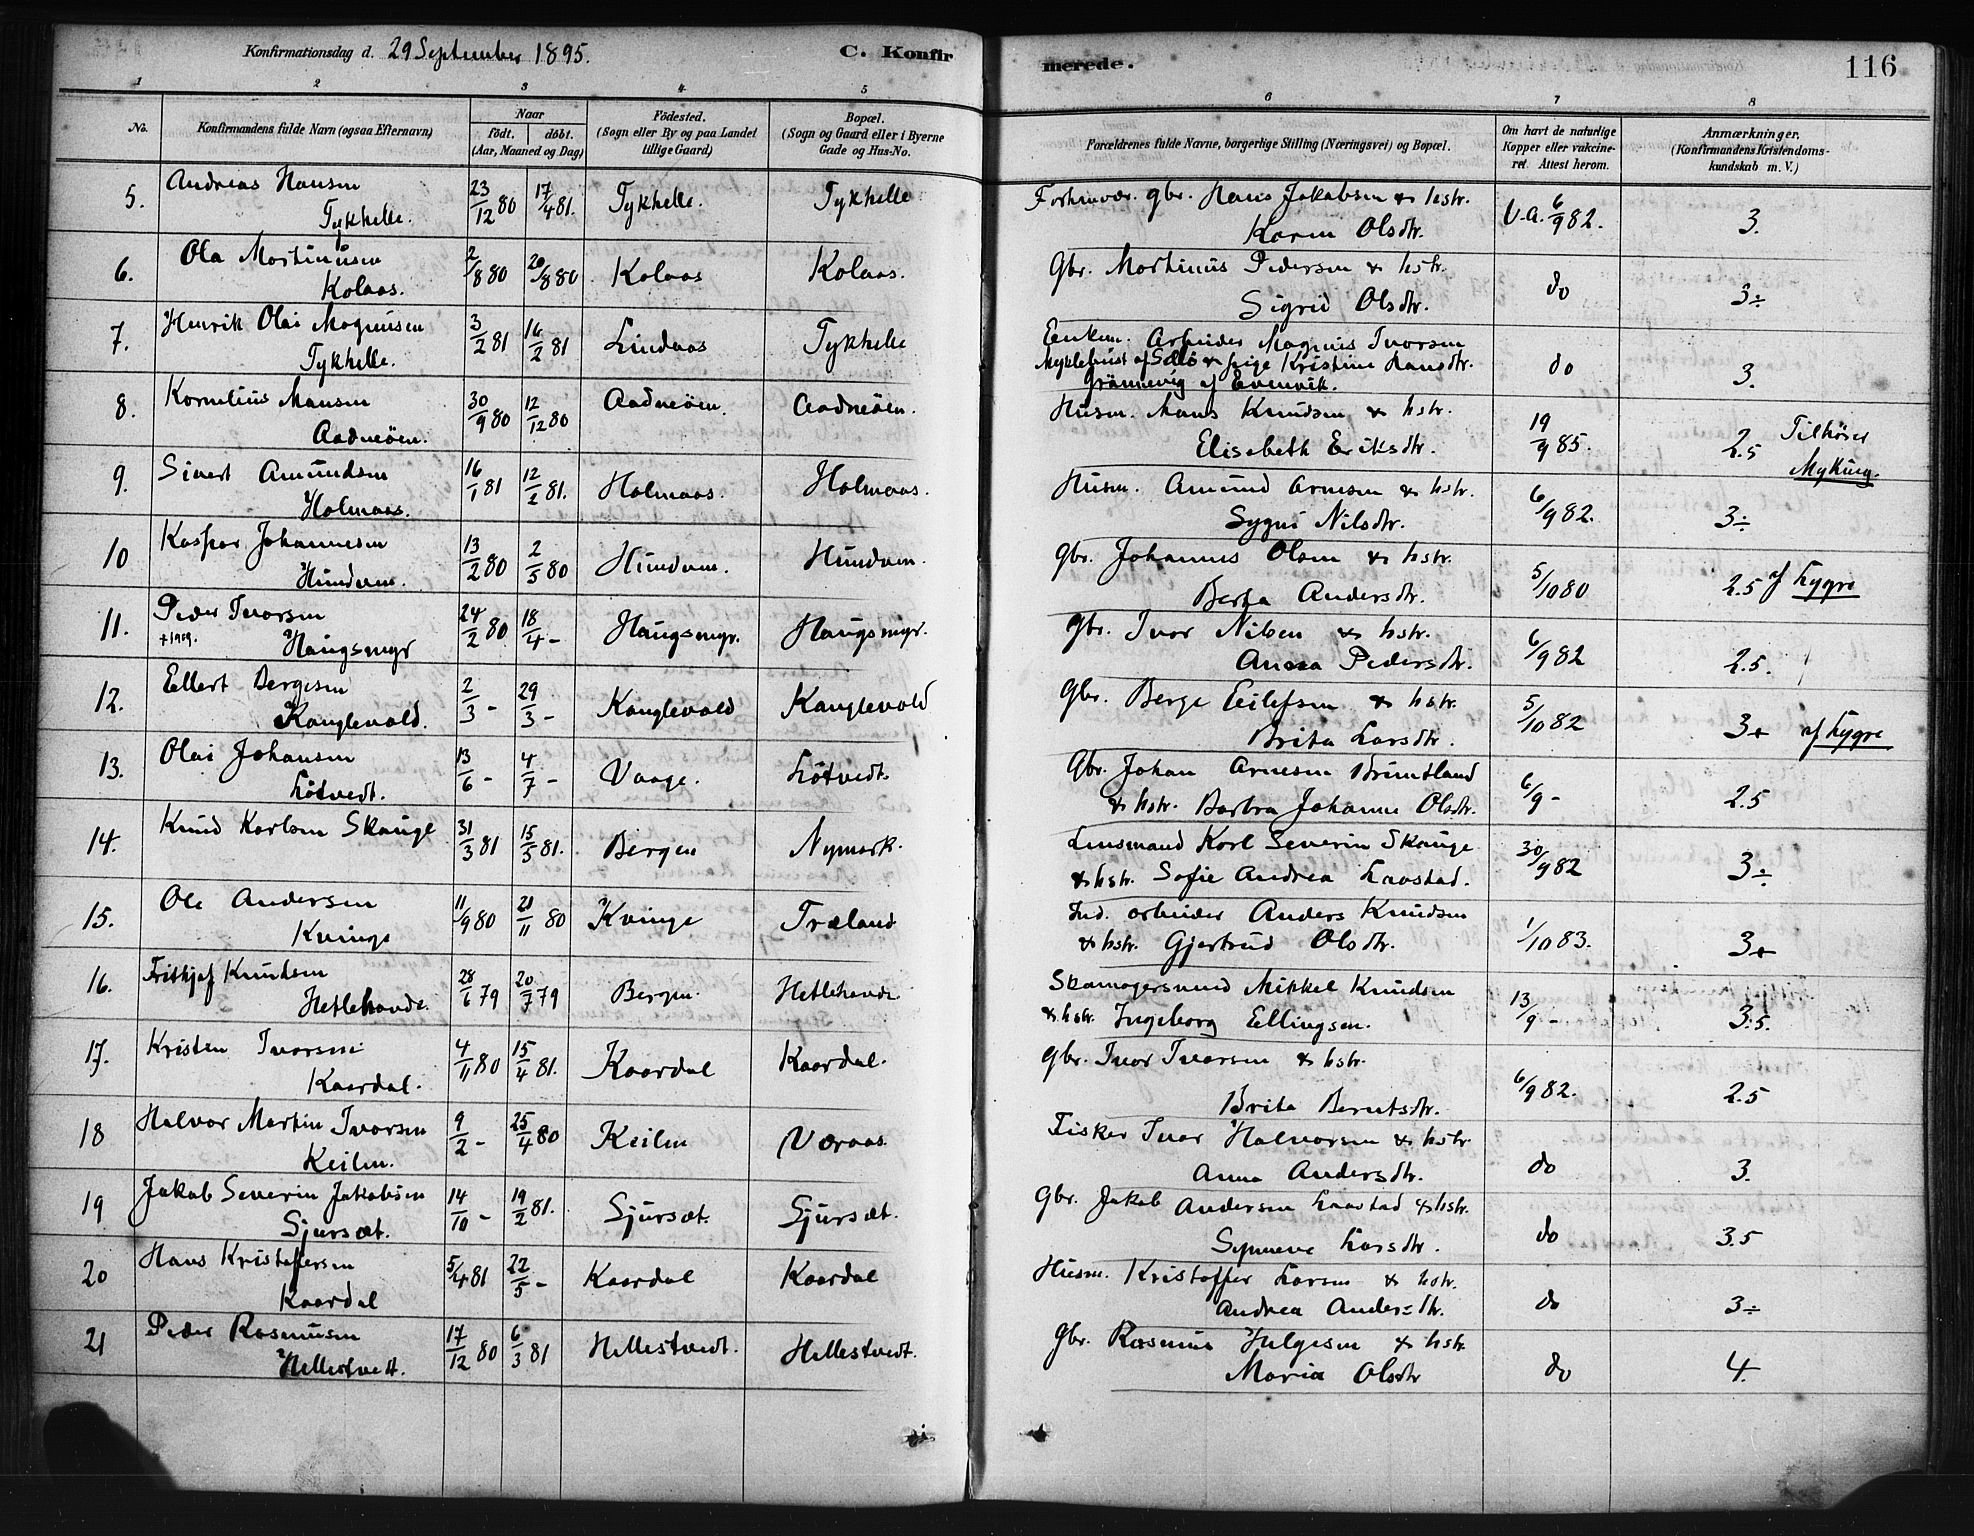 Konfirmationsdag d. 29 September 1895. C. Konfir merede. 116
1 2 3 4 5 6 7 8
No. Konfirmandens fulde Navn (ogsaa Efternavn) Naar født. døbt. (Aar, Maaned og Dag) Fødested. (Sogn eller By og paa Landet tillige Gaard) Bopæl. (Sogn og Gaard eller i Byerne Gade og Hus-No. Forældrenes fulde Navne, borgerlige Stilling (Næringsvei) og Bopæl. Om havt de naturlige Kopper eller vakcineret. Attest herom. Anmærkninger. (Konfirmandens Kristendomskundskab m. V.)
5. Andreas Hansen 23/12 80 17/4 81. Tykhelle. Tykhelle Forhenvær. gbr. Hans Jakobsen & hstr. V.A. 6/9 82. 3.
Tykhelle. Karen Olsdtr.
6. Ola Martinusen 2/8 80 20/8 80 Kolaas Kolaas. Gbr. Martinus Pedersen & hstr. do 3÷
Kolaas. Sigrid Olsdtr.
7. Henrik Olai Magnusen 3/2 81 16/2 81 Lindaas Tykhelle Enkem. Arbeider Magnus Ivarsen do 3.
Tykhelle. Myklebust af Sælø & pige Kristine Hansdtr.
Grønnevig af Evenvik.
8. Kornelius Mansen 30/9 80 12/12 80 Aadneøen. Aadneøen. Husm. Mans Knudsen & hstr. 19/9 85. 2.5 Tilhører
Aadneøen. Elisabeth Eriksdtr. Myking.
9. Sivert Amundsen 16/1 81 12/2 81. Holmaas. Holmaas. Husm. Amund Arnesen & hstr. 6/9 82. 3÷
Holmaas. Sygni Nilsdtr.
10 Kaspar Johannesen 13/2 80 2/5 80 Hundven. Hundven. Gbr. Johannes Olsen & hstr. 5/10 80 2.5 af Lygre
Hundven. Berta Andersdtr.
11. Peder Ivarsen 24/2 80 18/4 - Haugsmyr. Haugsmyr. Gbr. Ivar Nilsen & hstr. 6/9 82 2.5.
+1909. Haugsmyr Anna Pedersdtr.
12. Ellert Bergesen 2/3 - 29/3 - Kanglevold Kanglevold Gbr. Berge Eilefsen & hstr. 5/10 82 3+ af Lygre
Kanglevold. Brita Larsdtr.
13. Olai Johansen 13/6 - 4/7 - Vaage. Løtvedt. Gbr. Johan Arnesen Brundtland 6/9 - 2.5
Løtvedt. & hstr. Barbra Johanne Olsdtr.
14. Knud Karlsen Skauge 31/3 81 15/5 81. Bergen Nymark. Lensmand Karl Severin Skauge 30/9 82 3÷
& hstr. Sofie Andrea Laastad.
15. Ole Andersen 11/9 80 21/11 80 Kvinge Træland Ind. arbeider Anders Knudsen 1/10 83. 3+
Kvinge & hstr. Gjertrud Olsdtr.
16. Frithjof Knudsen 28/6 79 20/7 79 Bergen. Hetlehovde Skomagersvend Mikkel Knudsen 13/9 - 3.5.
Hetlehovde. & hstr. Ingeborg Ellingsen.
17. Kristen Ivarsen 4/11 80 15/4 81. Kaardal Kaardal. Gbr. Ivar Ivarsen & hstr. 6/9 82. 2.5
Kaardal. Brita Berntsdtr.
18 Halvor Martin Ivarsen 9/2 - 25/4 80 Keilen Væraas. Fisker Ivar Halvorsen & hstr. do 3.
Keilen. Anna Andersdtr.
19 Jakob Severin Jakobsen 14/10 - 19/2 81. Sjursæt. Sjursæt. Gbr. Jakob Andersen Laastad & hstr. do 3.5
Sjursæt. Synneve Larsdtr.
20 Hans Kristofersen 5/4 81 22/5 - Kaardal Kaardal Husm. Kristoffer Larsen & hstr. do 3÷
Kaardal Andrea Andersdtr.
21 Peder Rasmusen 17/12 80 6/3 81 Hellestvedt. Hellestvedt. Gbr. Rasmus Helgesen & hstr. do 4.
Hellestvett. Maria Olsdtr